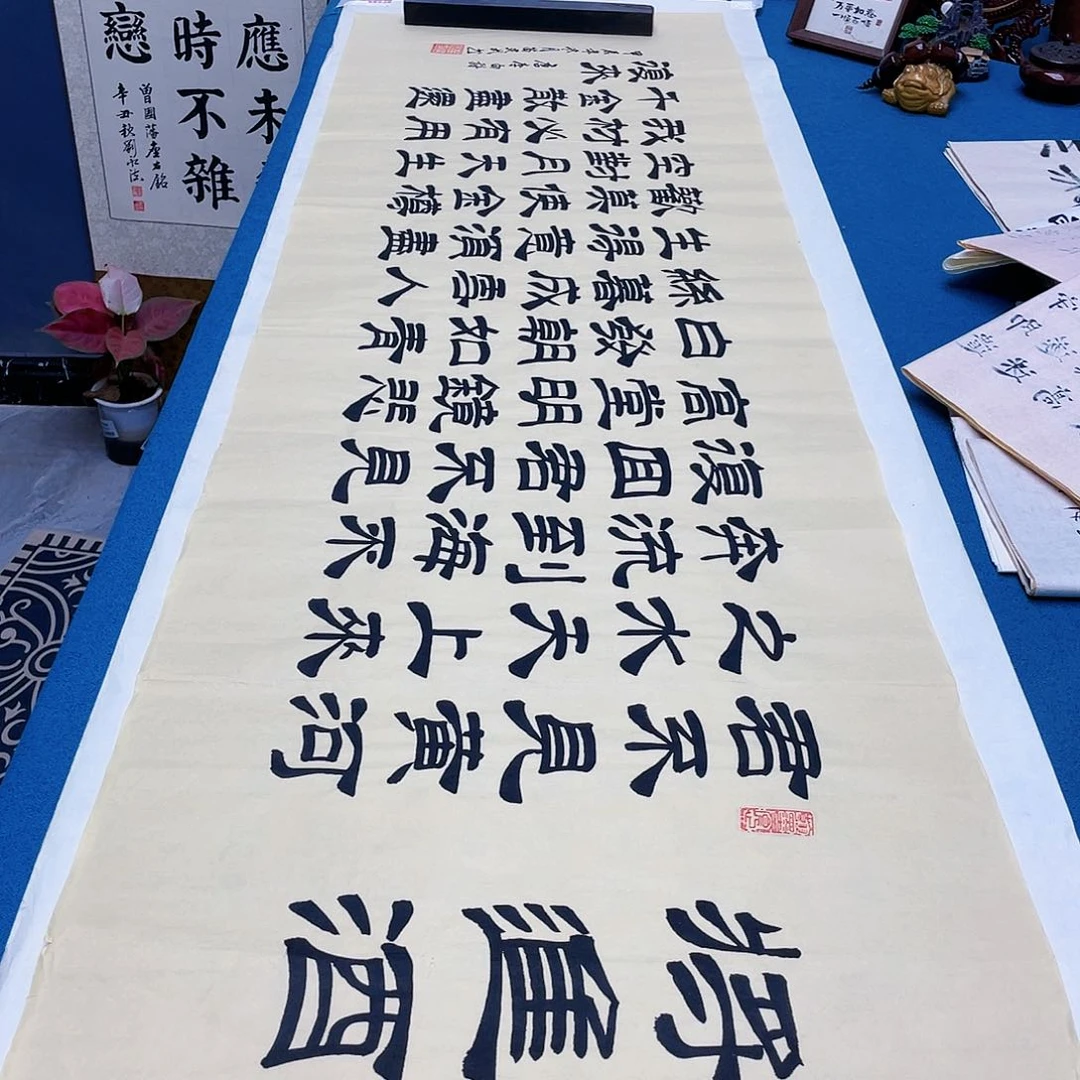 將進酒
君不見黃河
之水天上來
奔流到海不
復回君不見
高堂明鏡悲
白發朝如青
絲暮成雪人
生得意須盡
歡莫使金樽
空對月天生
我材必有用
千金散盡還
復來
應未
時不雜
戀
曾國藩座右銘
辛丑秋劉
万事如意